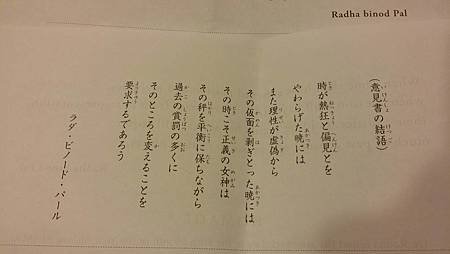 Radha binod Pal
（意見書の結語）
時が熱狂と偏見とを
やわらげた暁には
また理性が虚偽から
その仮面を剥ぎとった暁には
その時こそ正義の女神は
その秤を平衡に保ちながら
過去の賞罰の多くに
そのところを変えることを
要求するであろう
ラダ・ビノード・パール